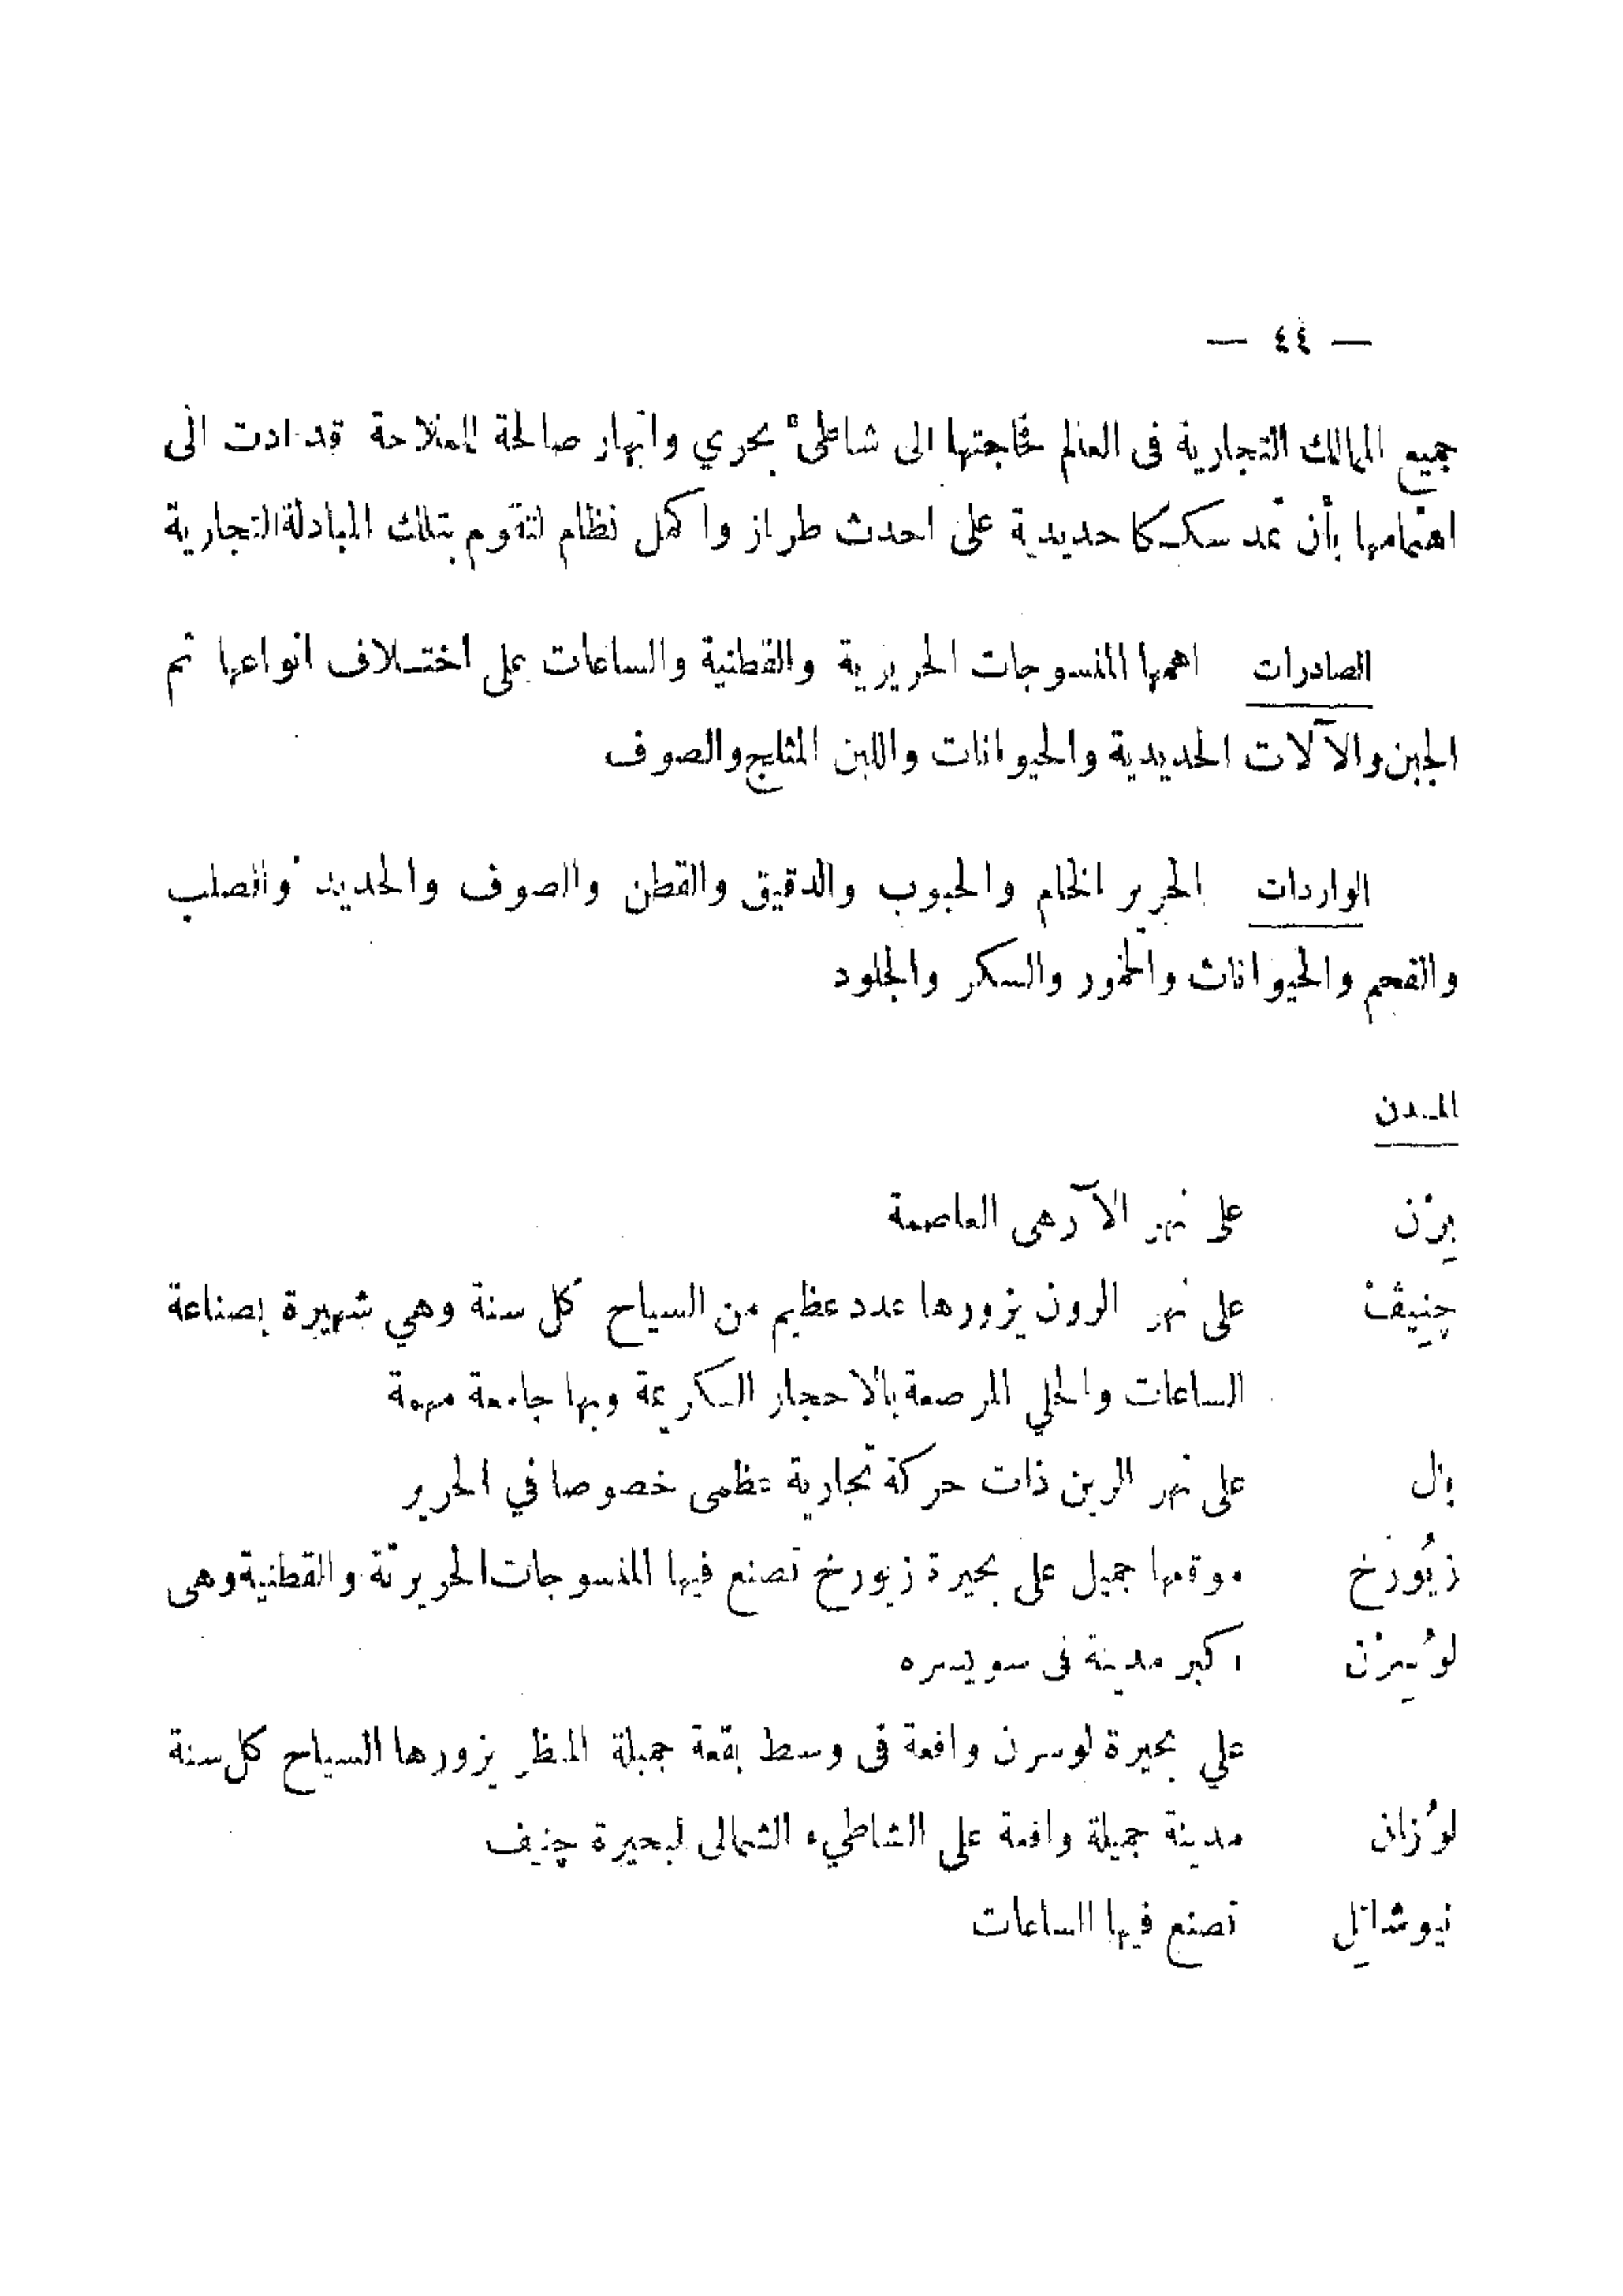 — ٤٤ —
جميع الممالك التجارية فى العالم فحاجتها الى شاطىء بحري وانهار صالحة للملاحة قد ادت الى
اهتمامها بأن تمد سككا حديدية على احدث طراز واكمل نظام لتقوم بتلك المبادلة التجارية
الصادرات اهمها المنسوجات الحريرية والقطنية والساعات على اختلاف انواعها ثم
الجبن والآلات الحديدية والحيوانات واللبن المثلج والصوف
الواردات الحرير الخام والحبوب والدقيق والقطن والصوف والحديد والصلب
والفحم والحيوانات والخمور والسكر والجلود
المدن
بِرْن على نهر الآر هى العاصمة
چِنِيڤْ على نهر الرون يزورها عدد عظيم من السياح كل سنة وهي شهيرة بصناعة
الساعات والحلي المرصعة بالاحجار الكريمة وبها جامعة مهمة
بال على نهر الرين ذات حركة تجارية عظمى خصوصا في الحرير
زيُورخ موقعها جميل على بحيرة زيورخ تصنع فيها المنسوجات الحريرية والقطنية وهى
لوُسِرْن اكبر مدينة فى سويسره
علي بحيرة لوسرن واقعة فى وسط بقعة جميلة المنظر يزورها السياح كل سنة
لوُزان مدينة جميلة واقعة على الشاطيء الشمالى لبحيرة چنيف
نيوشاتِل تصنع فيها الساعات